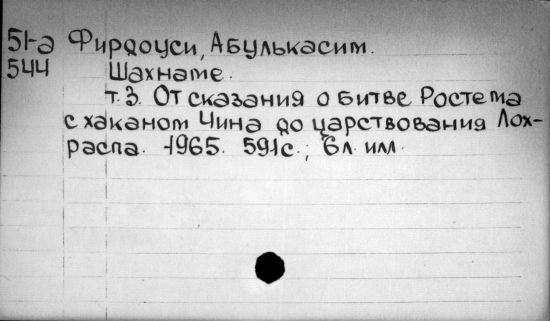 51-а Фирдоуси, Абулькасим.
544 Шахнаме.
т. 3. От сказания о битве Ростема
с хаканом Чина до царствования Лох-
распа. -1965. 591с.; 6л. илл.